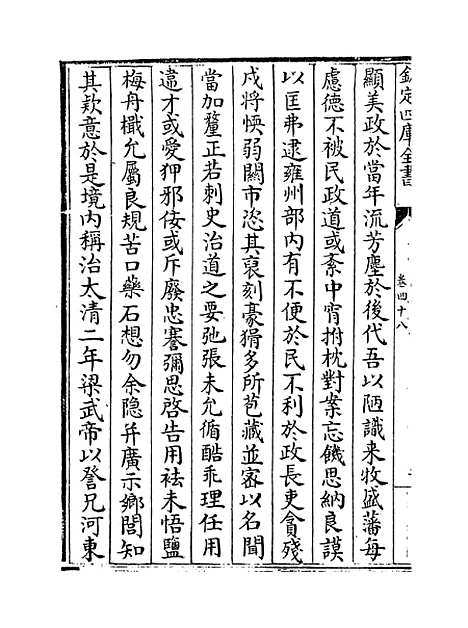 欽定四庫全書
卷四十八
顯美政於當年流芳塵於後代吾以陋識来牧盛藩每
慮德不被民政道或紊中宵拊枕對案忘饑思納良謨
以匡弗逮雍州部内有不便於民不利於政長吏貪殘
戍將愞弱關市恣其裒刻豪猾多所苞藏並密以名聞
當加釐正若刺史治道之要弛張未允循酷乖理任用
違才或愛狎邪佞或斥廢忠謇彌思啓告用祛未悟鹽
梅舟檝允屬良規苦口藥石想勿余隐并廣示鄉閭知
其欵意於是境内稱治太清二年梁武帝以詧兄河東